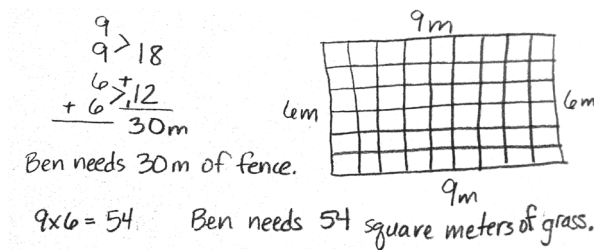 9
9 > 18
6 +
+ 6 > 12
30m
9m
6m
6m
9m
Ben needs 30m of fence.
9x6 = 54
Ben needs 54 square meters of grass.